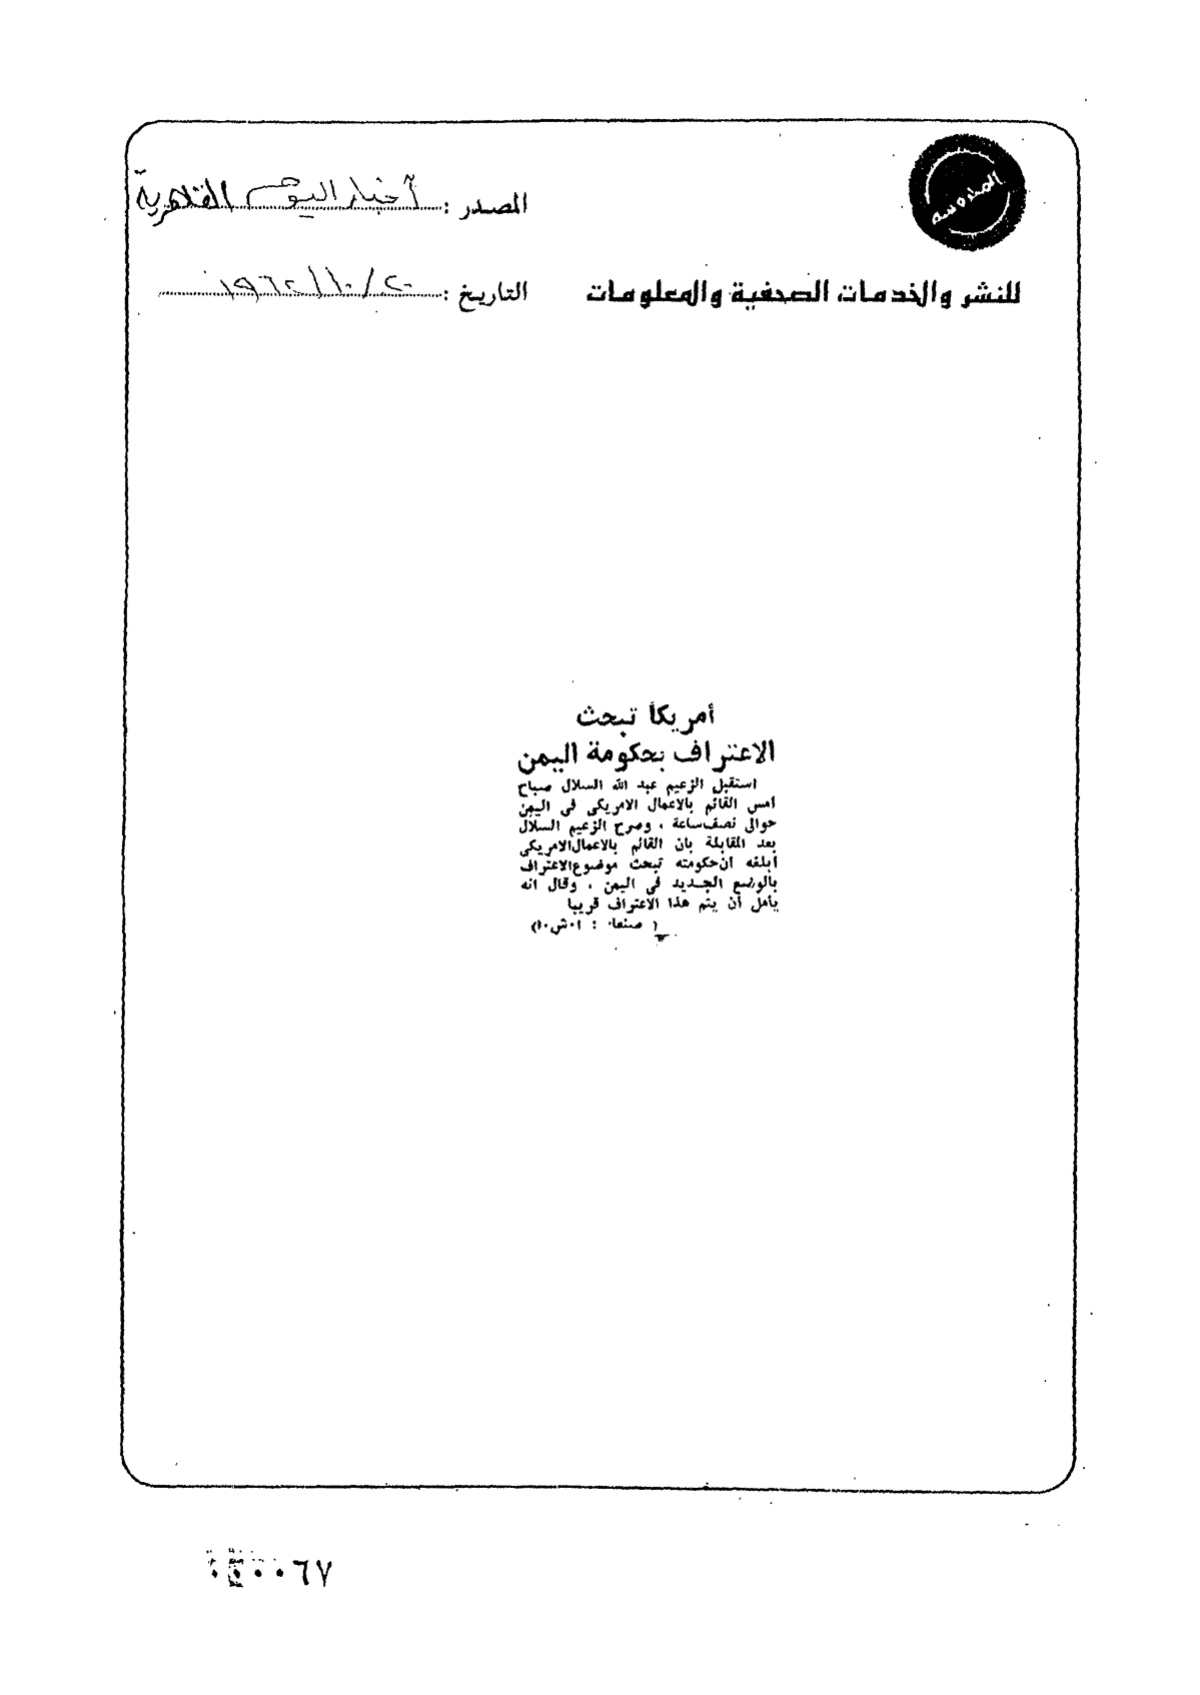 المحروسة
المصدر : أخبار اليوم القاهرية
للنشر والخدمات الصحفية والمعلومات
التاريخ : ٢٠/١٠/١٩٦٢
أمريكا تبحث
الاعتراف بحكومة اليمن
استقبل الزعيم عبد الله السلال صباح
امس القائم بالاعمال الامريكى فى اليمن
حوالى نصف ساعة ، وصرح الزعيم السلال
بعد المقابلة بان القائم بالاعمال الامريكى
ابلغه ان حكومته تبحث موضوع الاعتراف
بالوضع الجديد فى اليمن ، وقال انه
يأمل أن يتم هذا الاعتراف قريبا
( صنعاء : ا٠ش٠ا)
٠٠٦٧